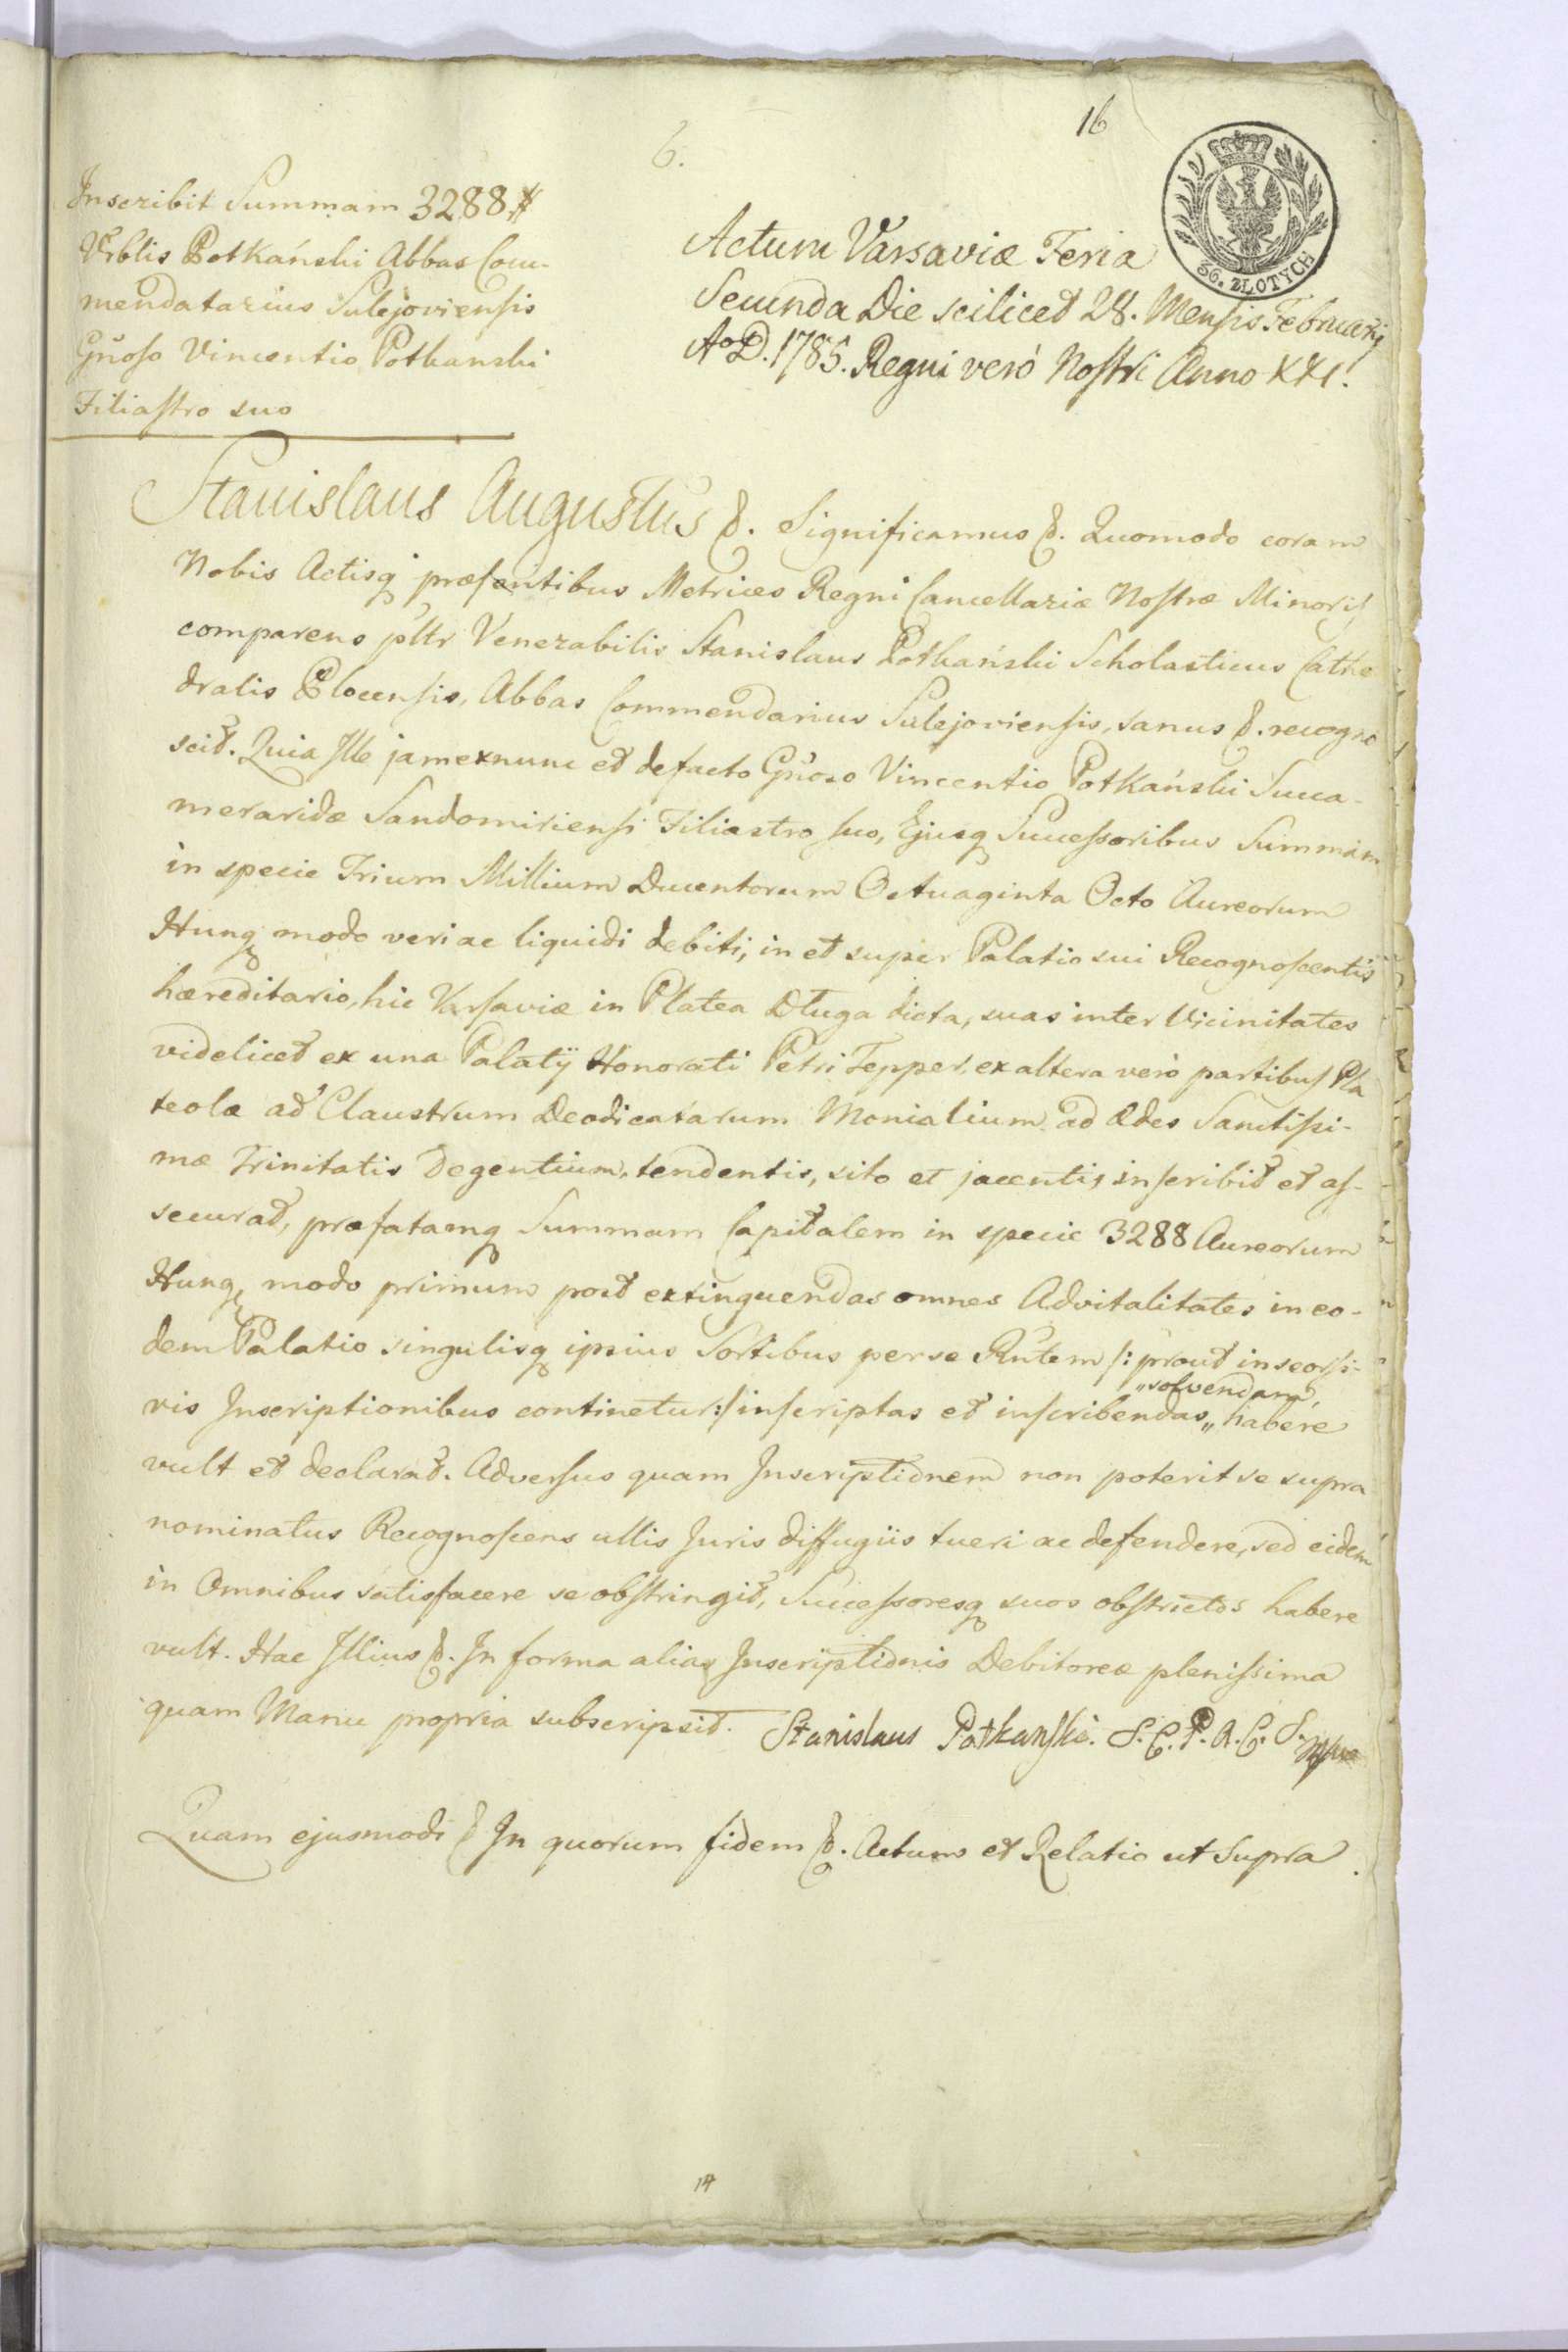 16
6.
36. ZŁOTYCH
Inscribit Summam 3288 #
Vrblis Potkański Abbas Com-
mendatarius Sulejoviensis
Gnoso Vincentio Potkanski
Filiastro suo
Actum Varsaviæ Feria
Secunda Die scilicet 28. Mensis Februarij
Ao D. 1785. Regni veró Nostri Anno XXI.
Stanislaus Augustus &. Significamus &. Quomodo coram
Nobis Actisq præsentibus Metrices Regni Cancellariæ Nostræ Minoris
comparens pltr Venerabilis Stanislaus Potkański Scholasticus Cathe
dralis Plocensis, Abbas Commendarius Sulejoviensis, sanus &. recogno
scit. Quia Ille jam exnunc et defacto Gnoso Vincentio Potkański Succa-
meraridæ Sandomiriensi Filiastro suo, Ejusq Successoribus Summam
in specie Trium Millium Ducentorum Octuaginta Octo Aureorum
Hung modo veri ac liquidi debiti, in et super Palatio sui Recognoscentis
hæreditario, hic Varsaviæ in Platea Długa dicta, suas inter Vicinitates
videlicet ex una Palatÿ Honorati Petri Tepper, ex altera veró partibus Pla
teolæ ad Claustrum Deodicatarum Monialium ad Ædes Sanctissi-
mæ Trinitatis Degentium, tendentis, sito et jacenti, inscribit et as-
securat, præfatamq Summam Capitalem in specie 3288 Aureorum
Hung, modo primum post extinguendas omnes Advitalitates in eo-
dem Palatio singulisq ipsius Sortibus per se Rntem /: prout in seorsi-
vis Inscriptionibus continetur :/ inscriptas et inscribendas „ habere
„ solvendam
vult et declarat. Adversus quam Inscriptionem non poterit se supra
nominatus Recognoscens ullis Juris diffugiis tueri ac defendere, sed eidem
in Omnibus satisfacere se obstringit, Successoresq suos obstrictos habere
vult. Hac Illius &. In forma alias Inscriptionis Debitoreæ plenissima
quam Manu propria subscripsit. Stanislaus Potkanski. S. C. P. A. C. S. mpria
Quam ejusmodi & In quorum fidem &. Actum et Relatio ut supra.